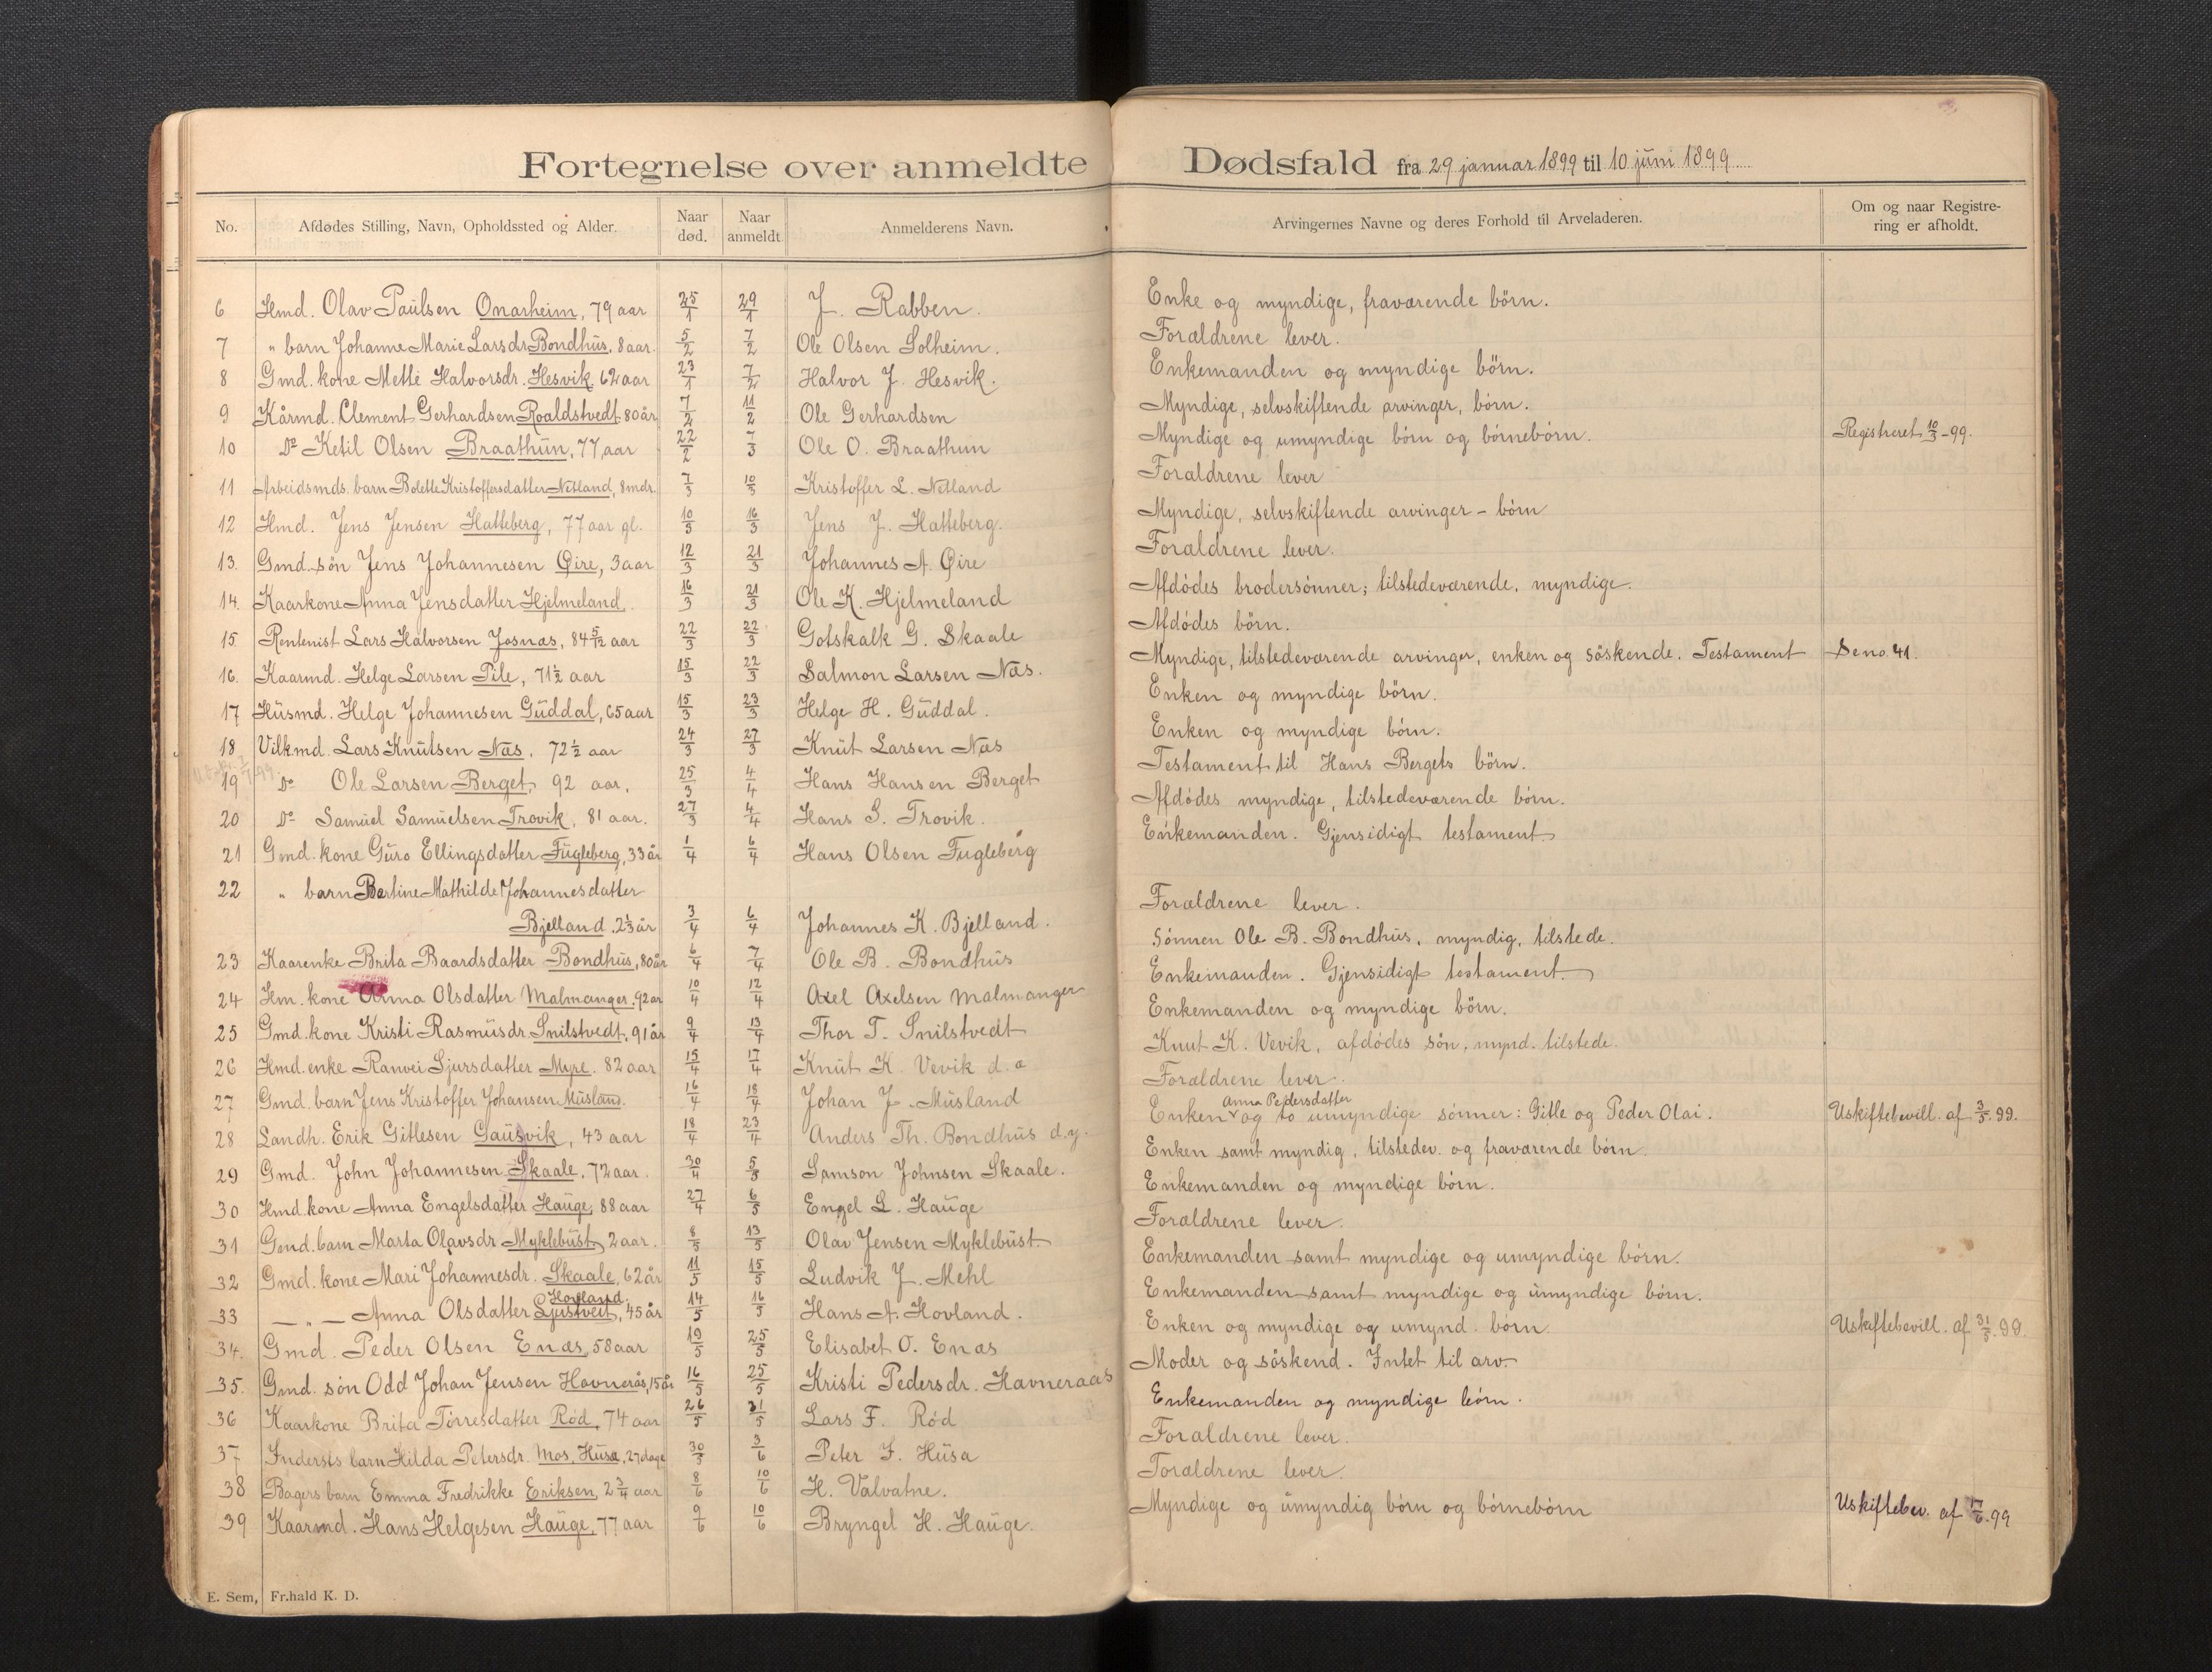 Fortegnelse over anmeldte Dødsfald fra 29 januar 1899 til 10 juni 1899
No. Afdødes Stilling, Navn, Opholdssted og Alder. Naar død. Naar anmeldt. Anmelderens Navn. Arvingernes Navne og deres Forhold til Arveladeren. Om og naar Registrering er afholdt.
6 Hmd. Olav Paulsen Onarheim, 79 aar 25/1 29/1 J. Rabben. Enke og myndige, fraværende börn.
7 " barn Johanne Marie Larsdr. Bondhus. 8 aar. 5/2 7/2 Ole Olsen Solheim. Forældrene lever.
8 Gmd. kone Metti Halvorsdr. Hesvik 62 aar 23/1 7/2 Halvor J. Hesvik. Enkemanden og myndige börn.
9 Kårmd. Clement Gerhardsen Roaldstvedt 80 år 7/2 11/2 Ole Gerhardsen Myndige, selvskiftende arvinger, börn.
10 Do Ketil Olsen Braathun, 77 aar 22/2 7/3 Ole O. Braathun Myndige og umyndige börn og börnebörn. Registreret 10/3-99.
11 Arbeidsmds. barn Bolette Kristoffersdatter Netland, 8 mdr. 7/3 10/3 Kristoffer L. Netland Forældrene lever
12 Hmd. Jens Jensen Hatteberg, 77 aar gl. 10/3 16/3 Jens J. Hatteberg. Myndige, selvskiftende arvinger - börn
13. Gmd. sön Jens Johannesen Øire, 3 aar 12/3 21/3 Johannes A. Øire Forældrene lever.
14. Kaarkone Anna Jensdatter Hjelmeland. 16/3 21/3 Ole K. Hjelmeland Afdödes brodersönner; tilstedeværende, myndige.
15 Rentenist Lars Halvorsen Josnæs, 84 5/12 aar 22/3 22/3 Gotskalk G. Skaale Afdödes börn.
16. Kaarmd. Helge Larsen Pile, 71 1/2 aar 15/3 22/3 Salmon Larsen Næs. Myndige, tilstedeværende arvinger, enken og söskende. Testament Se no. 41.
17 Husmd. Helge Johannesen Guddal, 65 aar 15/3 23/3 Helge H. Guddal. Enken og myndige börn.
18 Vilkmd. Lars Knutsen Næs. 72 1/2 aar 24/3 27/3 Knut Larsen Næs Enken og myndige börn.
19 Do Ole Larsen Berget, 92 aar, 25/3 4/4 Hans Hansen Berget Testament til Hans Bergets börn.
20 Do Samuel Samuelsen Trovik, 81 aar. 27/3 4/4 Hans S. Trovik. Afdödes myndige, tilstedeværende börn.
21 Gmd. kone Guro Ellingsdatter Fugleberg, 33 år 1/4 6/4 Hans Olsen Fugleberg Enkemanden. Gjensidigt testament
22 " barn Bertine Mathilde Johannesdatter
Bjelland. 2 1/3 år 3/4 6/4 Johannes K. Bjelland. Forældrene lever.
23 Kaarenke Brita Baardsdatter Bondhus, 80 år 6/4 7/4 Ole B. Bondhus Sönnen Ole B. Bondhus, myndig, tilstede.
24 Hm. kone Anna Olsdatter Malmanger. 92 ar 10/4 12/4 Axel Axelsen Malmanger Enkemanden. Gjensidigt testament
25 Gmd. kone Kristi Rasmusdr. Snilstvedt. 91 år 9/4 13/4 Thor T. Snilstvedt Enkemanden og myndige börn.
26 Hmd. enke Ranvei Sjursdatter Myre. 82 aar 15/4 17/4 Knut K. Vevik d. æ Knut K. Vevik, afdödes sön, mynd. tilstede.
27 Gmd. barn Jens Kristoffer Johansen Musland. 16/4 18/4 Johan J. Musland Forældrene lever.
28 Landh. Erik Gitlesen Gausvik, 43 aar 18/4 23/4 Anders Th. Bondhus d. y. Enken Anna Pedersdatter og to umyndige sönner: Gitle og Peder Olai. Uskiftebevill. af 3/5. 99.
29 Gmd. John Johannesen Skaale. 72 aar. 30/4 5/5 Samson Johnsen Skaale. Enken samt myndig, tilstedev. og fraværende börn.
30 Hmd. kone Anna Engelsdatter Hauge, 88 aar 27/4 6/5 Engel L. Hauge Enkemanden og myndige börn.
31 Gmd. barn Marta Olavsdr. Myklebust, 2 aar. 8/5 13/5 Olav Jensen Myklebust. Forældrene lever.
32 Gmd. kone Mari Johannesdr. Skaale, 62 år 11/5 15/5 Ludvik J. Mehl Enkemanden samt myndige og umyndige börn.
33 — " — Anna Olsdatter Ljustveit Hovland, 45 år 14/5 16/5 Hans A. Hovland. Enkemanden samt myndige og umyndige börn.
34. Gmd. Peder Olsen Enæs, 58 aar 19/5 25/5 Elisabet O. Enæs Enken og myndige og umynd. börn. Uskiftebevill. af 31/5. 99.
35. Gmd. sön Odd Johan Jensen Havnerås, 15 år 16/5 25/5 Kristi Pedersdr. Havneraas Moder og söskend. Intet til arv.
36 Kaarkone Brita Törresdatter Röd, 74 aar 26/5 31/5 Lars F. Röd Enkemanden og myndige börn.
37 Indersts barn Hilda Petersdr. Mos, Husa, 27 dage 30/5 3/6 Peter I. Husa Forældrene lever.
38 Bagers barn Emma Fredrikke Eriksen, 2 3/4 aar 8/6 10/6 H. Valvatne. Forældrene lever.
39 Kaarmd. Hans Helgesen Hauge, 77 aar 9/6 10/6 Bryngel H. Hauge. Myndige og umyndig börn og börnebörn Uskiftebev. af 17/6. 99
E. Sem, Fr.hald K. D.